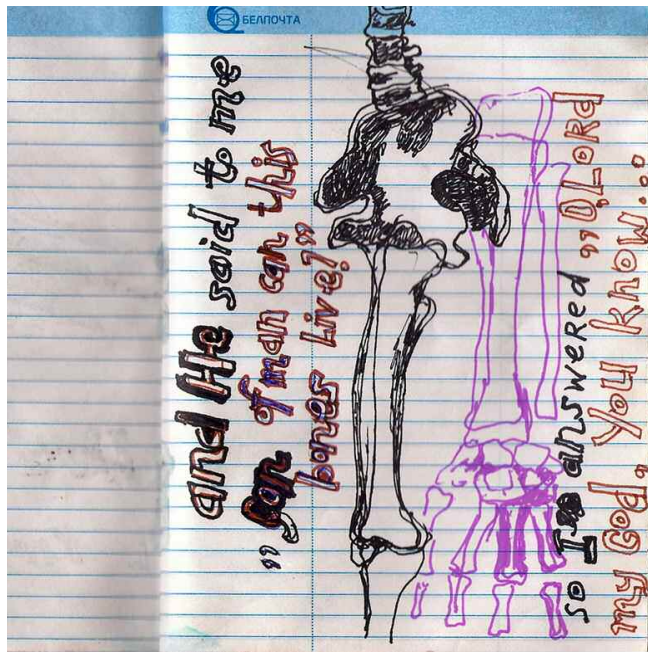 БЕЛПОЧТА
and He said to me
"
of man can this
bones Live?"
so I answered "O, Lord
my God, You know...